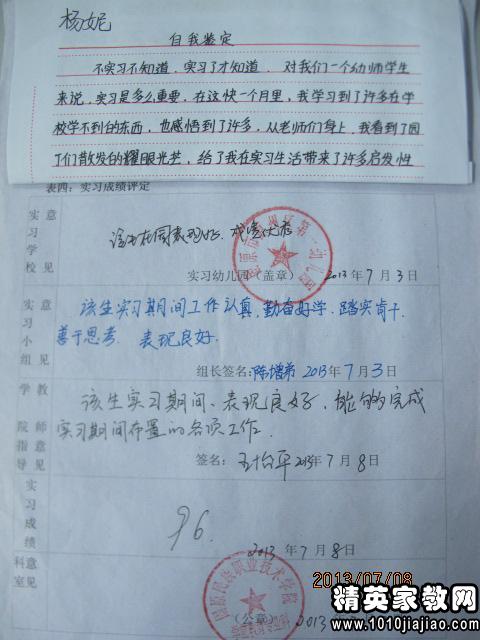 杨妮
自我鉴定
不实习不知道，实习了才知道，对我们一个幼师学生
来说，实习是多么重要，在这快一个月里，我学习到了许多在学
校学不到的东西，也感悟到了许多，从老师们身上，我看到了园
丁们散发的耀眼光芒，给了我在实习生活带来了许多启发性
表四：实习成绩评定
实习学校意见
该生在园表现好，成绩优秀
实习幼儿园（盖章） 2013年7月3日
实习小组意见
该生实习期间工作认真，勤奋好学，踏实肯干，
善于思考，表现良好。
组长签名： 2013年7月3日
学院指导教师意见
该生实习期间、表现良好，能够完成
实习期间布置的各项工作。
签名： 2013年7月8日
实习成绩
96.
2013年7月8日
2013/07/08
科室意见
职业技术学院
（公章） 2013
精英家教网
www.1010jiajiao.com